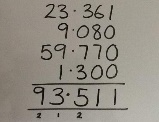 23·361
9·080
59·770
1·300
93·511
2 1 2